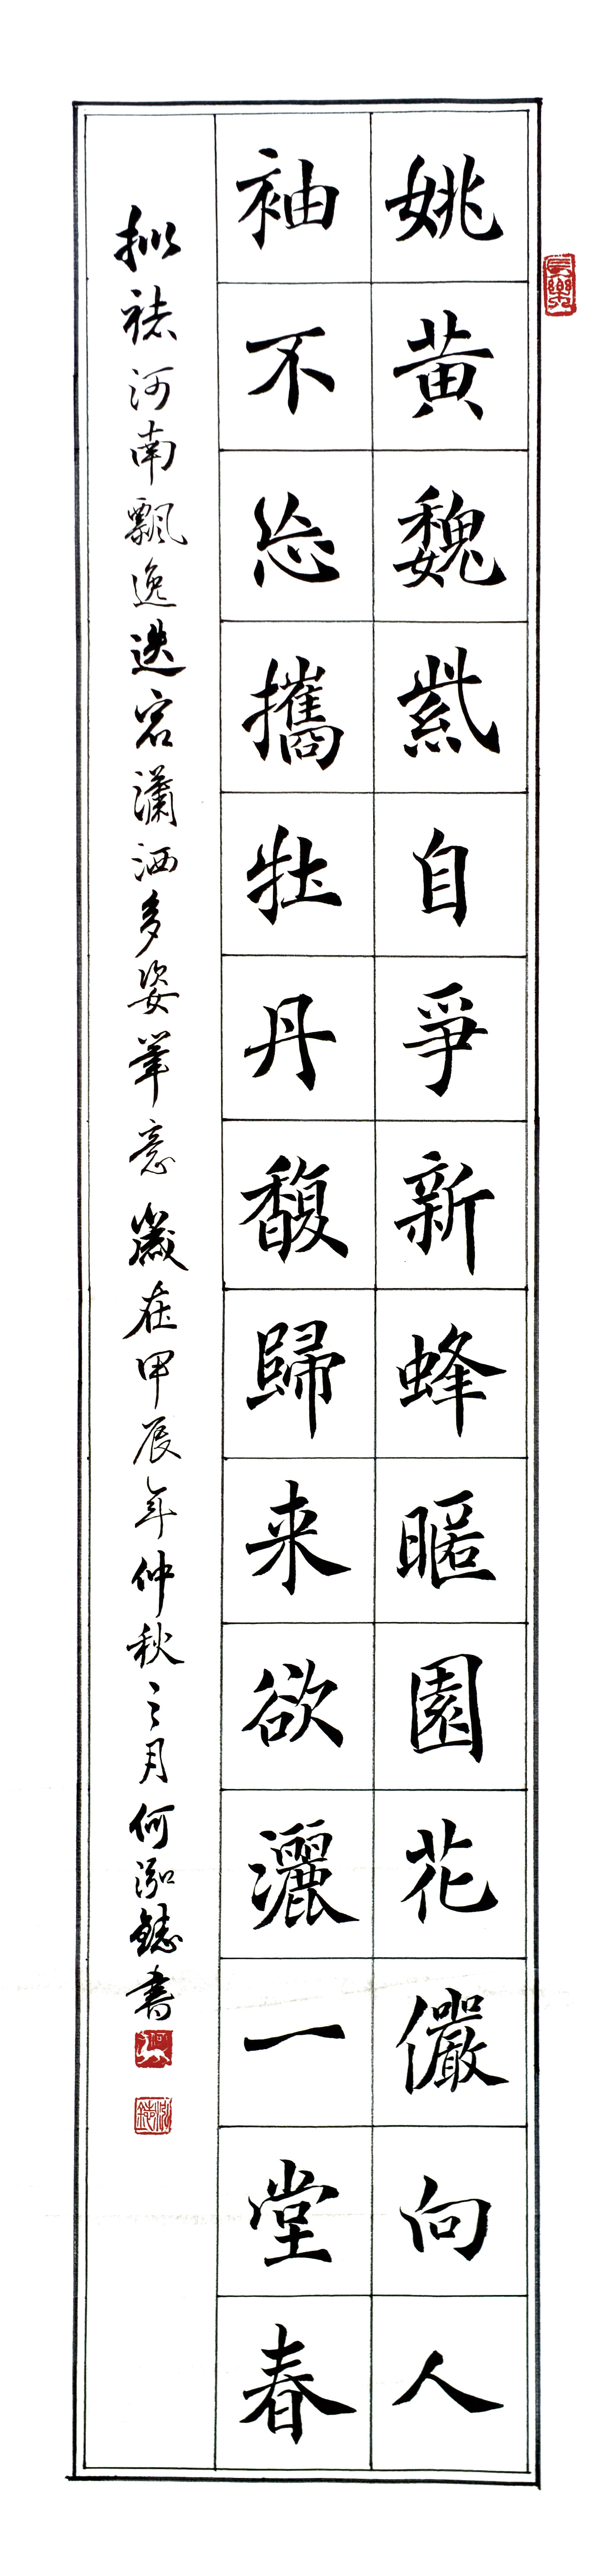 長樂
姚黄魏紫自爭新蜂暱園花儼向人
袖不忘攜牡丹馥歸来欲灑一堂春
拟褚河南飄逸迭宕瀟洒多姿筆意 歲在甲辰年仲秋之月何泓鋕書
泓鋕